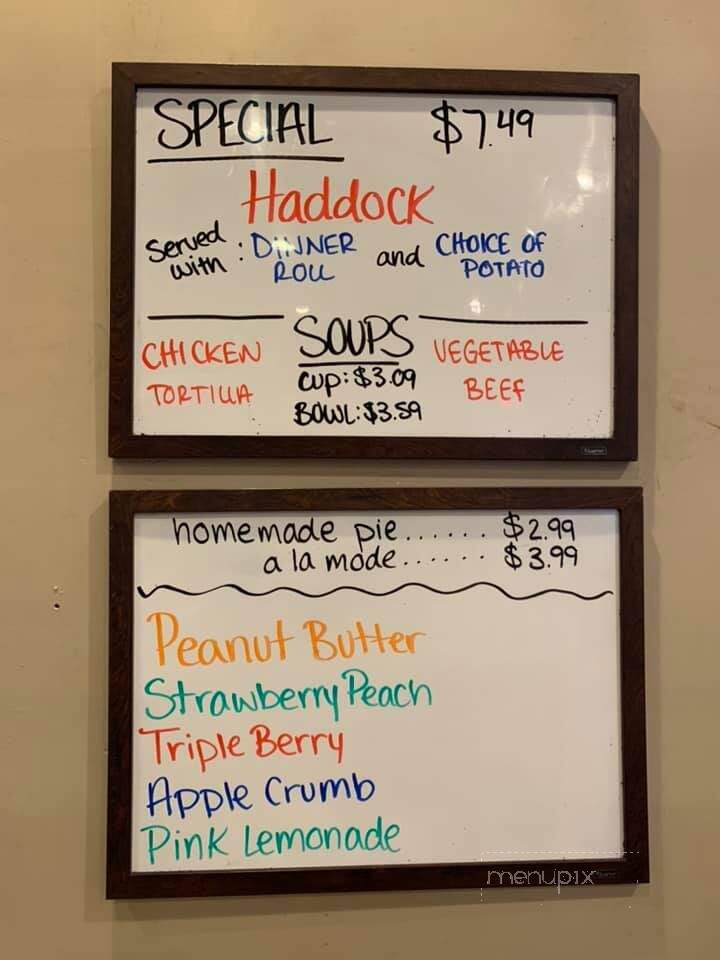 SPECIAL $7.49
Haddock
Served with: DINNER ROLL and CHOICE OF POTATO
SOUPS
CHICKEN TORTILLA
cup: $3.09
BOWL: $3.59
VEGETABLE BEEF
homemade pie...... $2.99
a la mode...... $3.99
Peanut Butter
Strawberry Peach
Triple Berry
Apple Crumb
Pink Lemonade
menupix